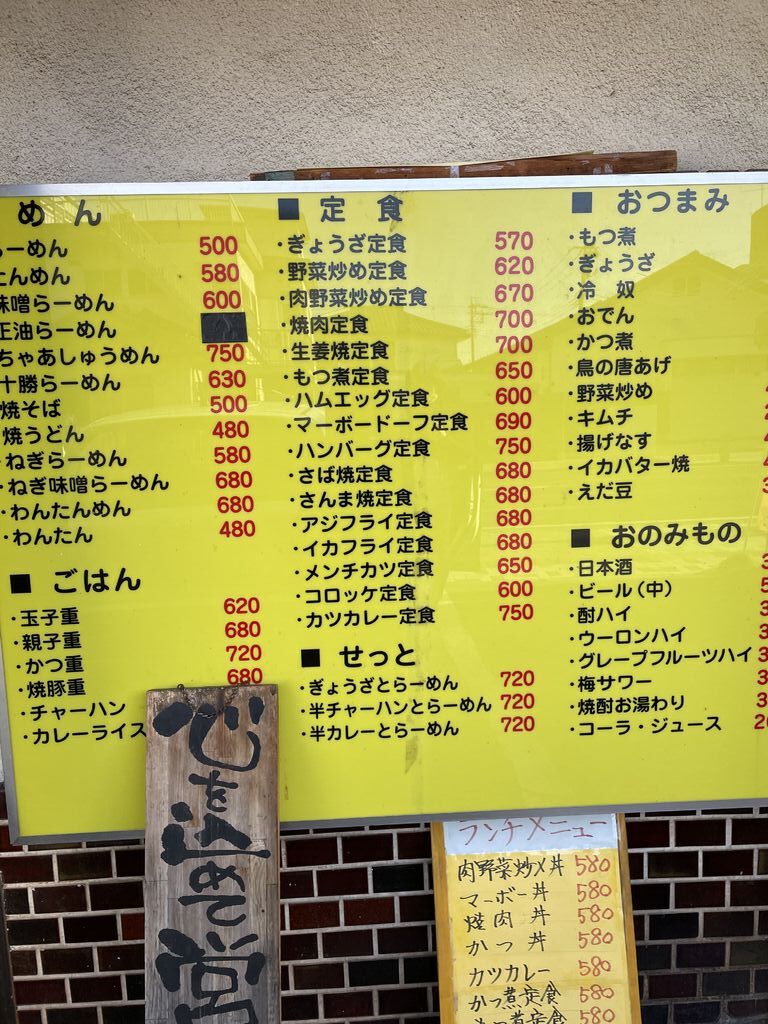 めん
らーめん 500
たんめん 580
味噌らーめん 600
正油らーめん
ちゃあしゅうめん 750
十勝らーめん 630
焼そば 500
焼うどん 480
・ねぎらーめん 580
・ねぎ味噌らーめん 680
・わんたんめん 680
・わんたん 480
■ ごはん
・玉子重 620
・親子重 680
・かつ重 720
・焼豚重 680
・チャーハン
・カレーライス
■ 定食
・ぎょうざ定食 570
・野菜炒め定食 620
・肉野菜炒め定食 670
・焼肉定食 700
・生姜焼定食 700
・もつ煮定食 650
・ハムエッグ定食 600
・マーボードーフ定食 690
・ハンバーグ定食 750
・さば焼定食 680
・さんま焼定食 680
・アジフライ定食 680
・イカフライ定食 680
・メンチカツ定食 650
・コロッケ定食 600
・カツカレー定食 750
■ せっと
・ぎょうざとらーめん 720
・半チャーハンとらーめん 720
・半カレーとらーめん 720
■ おつまみ
・もつ煮
・ぎょうざ
・冷奴
・おでん
・かつ煮
・鳥の唐あげ
・野菜炒め
・キムチ
・揚げなす
・イカバター焼
・えだ豆
■ おのみもの
・日本酒
・ビール(中)
・酎ハイ
・ウーロンハイ
・グレープフルーツハイ
・梅サワー
・焼酎お湯わり
・コーラ・ジュース
心を込めて営
ランチメニュー
肉野菜炒メ丼 580
マーボー丼 580
焼肉丼 580
かつ丼 580
カツカレー 580
かつ煮定食 580
もつ煮定食 580